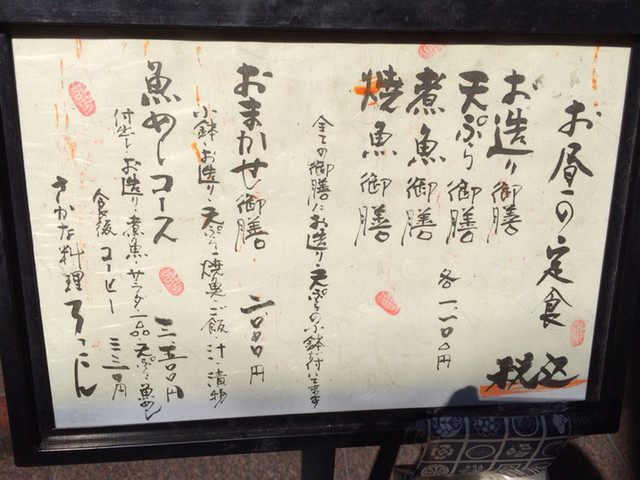 お昼の定食
税込
お造り御膳
天ぷら御膳
煮魚御膳
焼魚御膳
各一、一〇〇円
全ての御膳にお造り・天ぷらの小鉢付いてます
おまかせ御膳
二〇〇〇円
小鉢・お造り・天ぷら・焼魚・ご飯・汁・漬物
魚めしコース
付出し・お造り・煮魚・サラダ・一品・天ぷら・魚めし
食後コーヒー
三三〇円
さかな料理